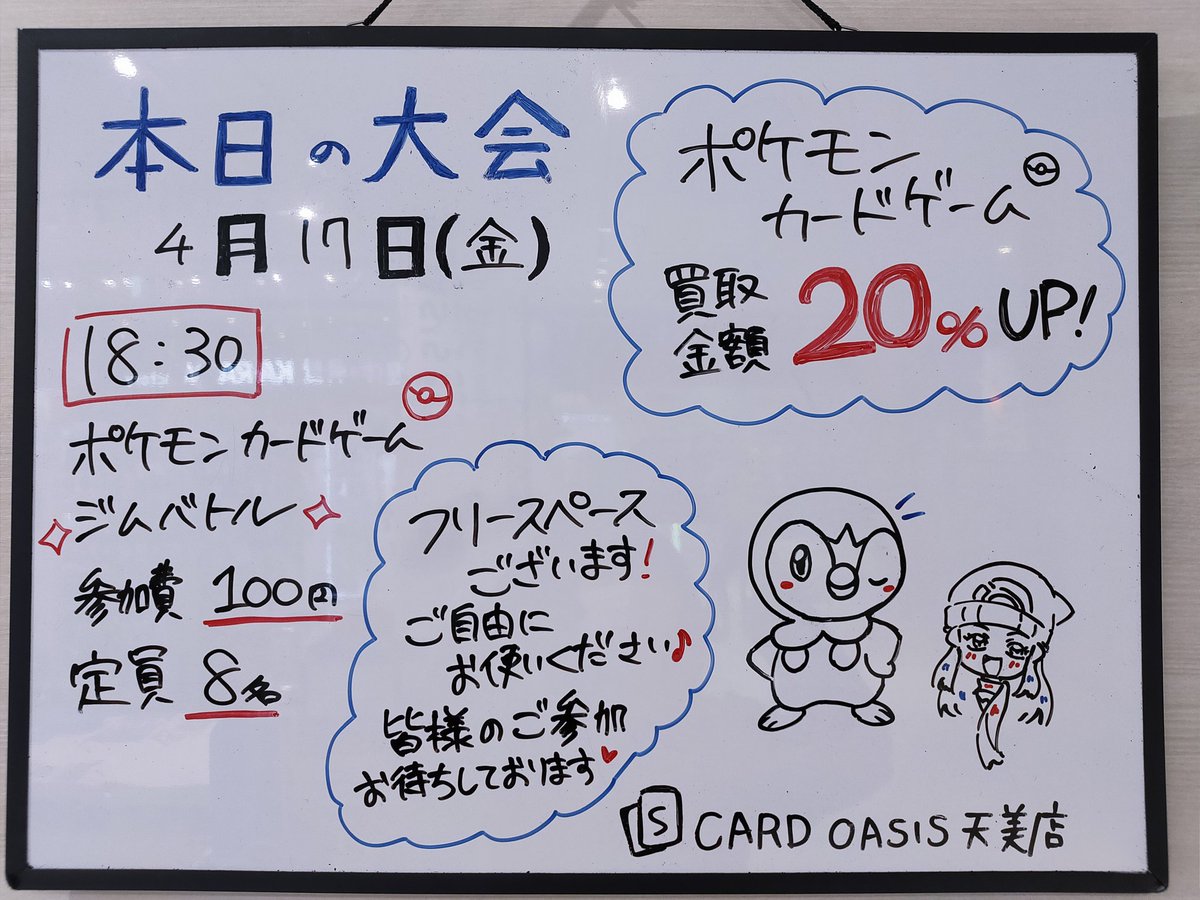 本日の大会
4月17日(金)
18:30
ポケモンカードゲーム
ジムバトル
参加費 100円
定員 8名
ポケモン
カードゲーム
買取
金額 20% UP!
フリースペース
ございます!
ご自由に
お使いください♪
皆様のご参加
お待ちしております
S CARD OASIS 天美店